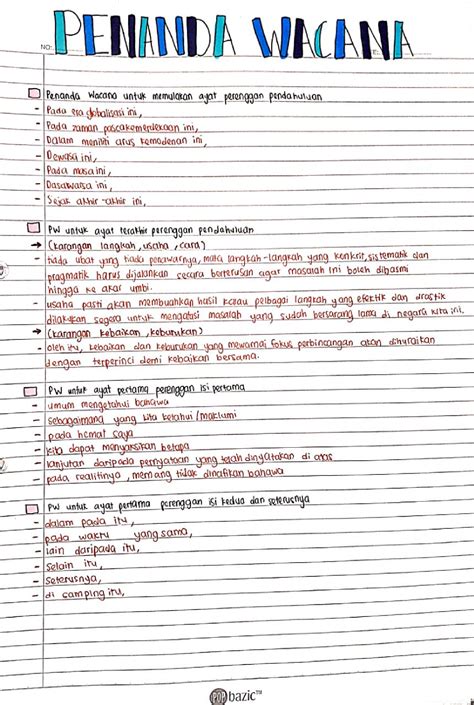 PENANDA WACANA
NO:
Penanda Wacana untuk memulakan ayat perenggan pendahuluan
- Pada era globalisasi ini,
- Pada zaman pascakemerdekaan ini,
- Dalam meniti arus kemodenan ini,
- Dewasa ini,
- Pada masa ini,
- Dasawarsa ini,
- Sejak akhir-akhir ini,
PW untuk ayat terakhir perenggan pendahuluan
→ (karangan langkah, usaha, cara)
- tiada ubat yang tiada penawarnya, maka langkah-langkah yang konkrit, sistematik dan
pragmatik harus dijalankan secara berterusan agar masalah ini boleh dibasmi
hingga ke akar umbi.
- usaha pasti akan membuahkan hasil kerana pelbagai langkah yang efektik dan drastik
dilakukan segera untuk mengatasi masalah yang sudah bersarang lama di negara kita ini.
→ (karangan kebaikan, keburukan)
- oleh itu, kebaikan dan keburukan yang mewarnai fokus perbincangan akan dihuraikan
dengan terperinci demi kebaikan bersama.
PW untuk ayat pertama perenggan isi pertama
- umum mengetahui bahawa
- sebagaimana yang kita ketahui /maklumi
- pada hemat saya
- kita dapat menyaksikan betapa
- lanjutan daripada pernyataan yang telah dinyatakan di atas
- pada realitinya, memang tidak dinafikan bahawa
PW untuk ayat pertama perenggan isi kedua dan seterusnya
- dalam pada itu,
- pada waktu yang sama,
- lain daripada itu,
- Selain itu,
- seterusnya,
- di samping itu,
bazic™